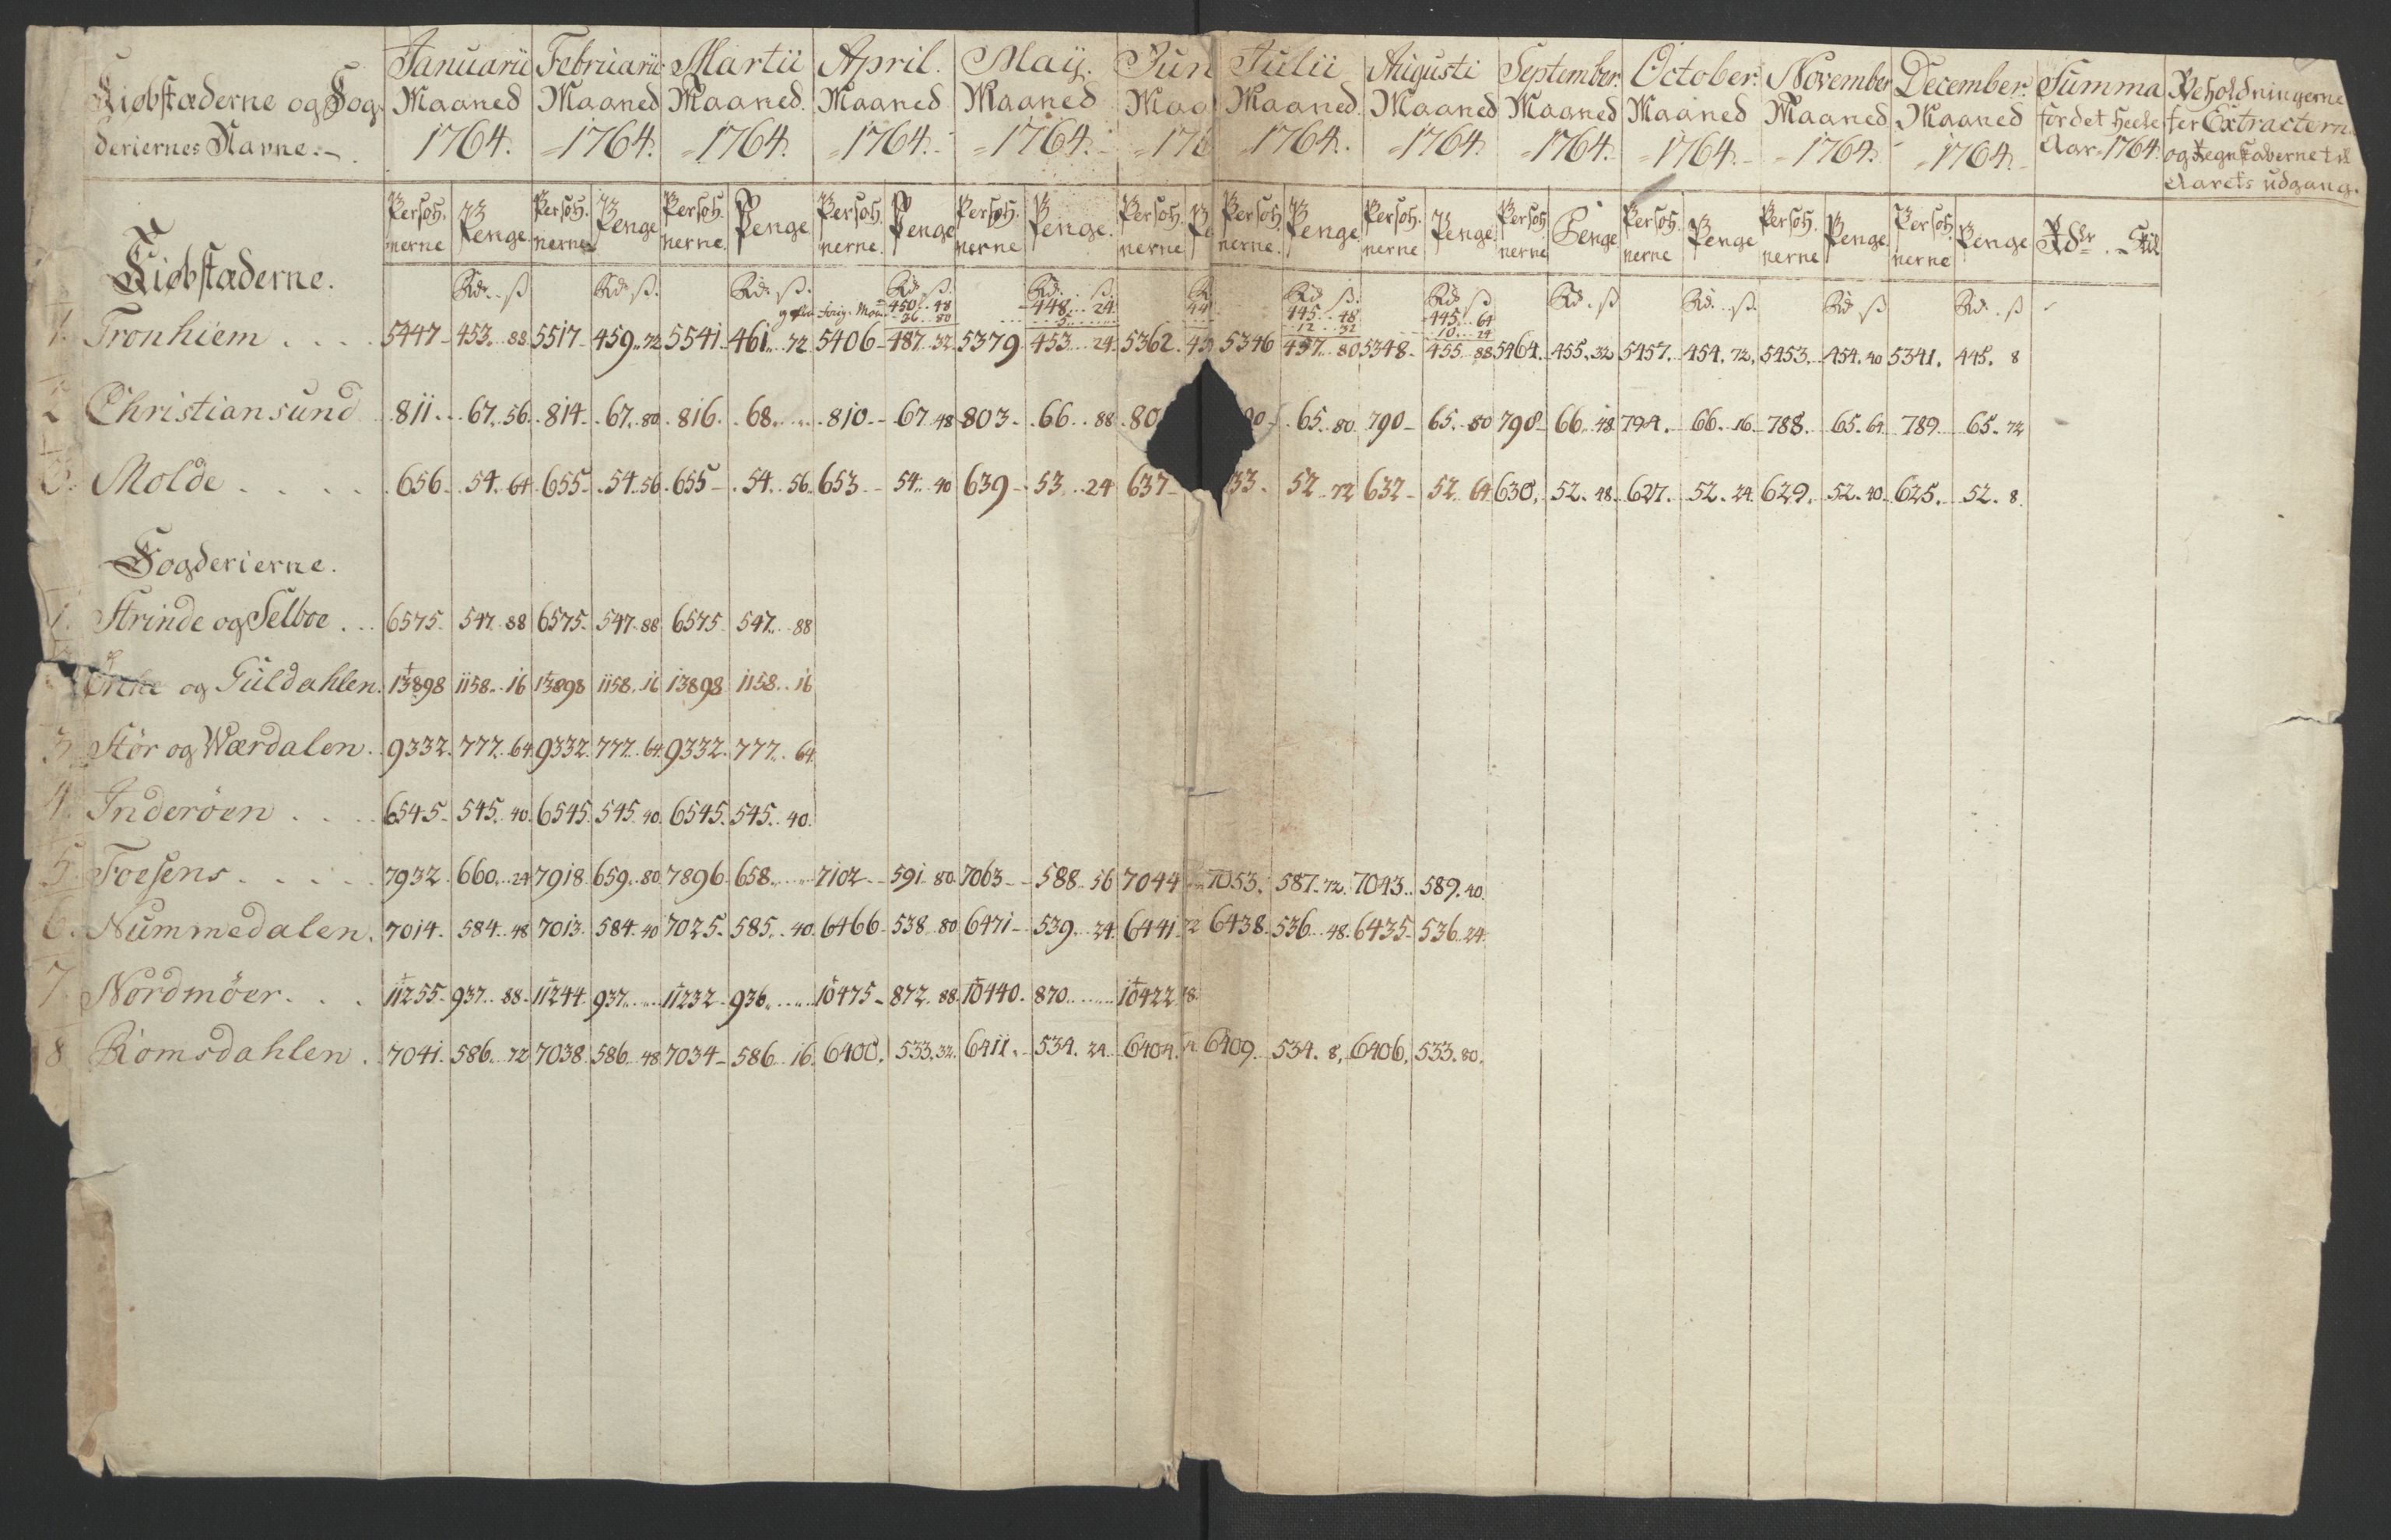 Januarii Februarii Martii April. Maij. Jun Julii Augusti September. October. November December. Summa Beholdningerne
Kiøbstæderne og Fog Maaned Maaned Maaned. Maaned Maaned Maa Maaned. Maaned Maaned Maaned Maaned Maaned for det heele Extractern
deriernes Navne. 1764. 1764. 1764. 1764. 1764. 176 1764. 1764. 1764. 1764. 1764. 1764. Aar 1764. og Regnskaberne til
Aarets udgang.
Persoh. Penge Persoh. Penge Persoh. Penge Persoh. Penge Persoh. Penge. Persoh. Pe Persoh. Penge Persoh. Penge Persoh. Penge Persoh. Penge Persoh. Penge Persoh. Penge Rdlr. Skil
nerne nerne nerne nerne. nerne nerne nerne. nerne nerne nerne nerne nerne
Kiøbstæderne.
Rd. ß Rd. ß. Rd. ß. Rd. ß. Rd. ß. R Rd. ß. Rd. ß Rd. ß Rd. ß. Rd. ß Rd. ß
450.. 48 448.. 24. 44 445.. 48 445.. 64
36.. 80 5 12.. 32 10.. 24
1. Tronhiem .... 5447 453.. 88 5517 459.. 72 5541 461.. 72 5406 487.. 32 5379 453.. 24 5362. 45 5346 457.. 80 5348 455.. 88 5464. 455. 32 5457. 454. 72. 5453. 454. 40 5341. 445. 8
2 Christiansund 811.. 67. 56. 814. 67. 80. 816. 68. 810. 67. 48 803. 66.. 88 80 90 65. 80. 790 65. 80 798 66. 48 794. 66. 16. 788. 65. 64 789 65. 72
3. Molde .... 656. 54. 64 655 54. 56. 655 54.. 56. 653 54.. 40 639 53.. 24 637 33. 52.. 72 632 52. 64 630. 52. 48. 627. 52. 24. 629. 52. 40. 625. 52. 8.
Fogderierne.
1. Strinde og Selboe... 6575. 547. 88 6575. 547. 88 6575 547. 88
og Guldahlen. 13898 1158.. 16 13898 1158. 16 13898 1158.. 16
3. Stør og Wærdalen. 9332. 777.. 64 9332. 777.. 64. 9332. 777.. 64
4. Inderøen .... 6545. 545. 40. 6545. 545. 40. 6545. 545.. 40.
5. Foesens .... 7932 660.. 24 7918 659.. 80 7896. 658. 7102 591. 80. 7063 588.. 56 7044 7053. 587. 72. 7043.. 589. 40.
6. Nummedalen. 7014. 584.. 48 7013. 584. 40 7025. 585.. 40. 6466 538.. 80. 6471 539.. 24. 6441. 72 6438. 536.. 48. 6435. 536. 24.
7. Nordmøer... 11255. 937.. 88. 11244. 937. 11232 936. 10475 872. 88. 10440. 870. 10422. 48.
8 Romsdahlen. 7041. 586.. 72 7038. 586.. 48 7034 586.. 16. 6400. 533. 32. 6411. 534. 24. 6404. 6409. 534. 8. 6406. 533. 80.